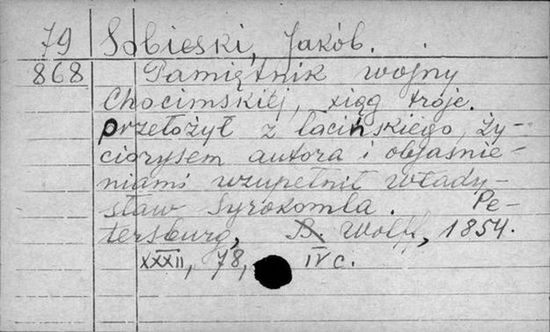 79 Sobieski, Jakób.
868 Pamiętnik wojny
Chocimskiéj, xiąg troje.
przełożył z łacińskiego, ży-
ciorysem autora i objaśnie-
niami uzupełnił Włady-
sław Syrokomla. Pe-
tersburg, B. Wolff, 1854.
XXXII, 78, IV c.